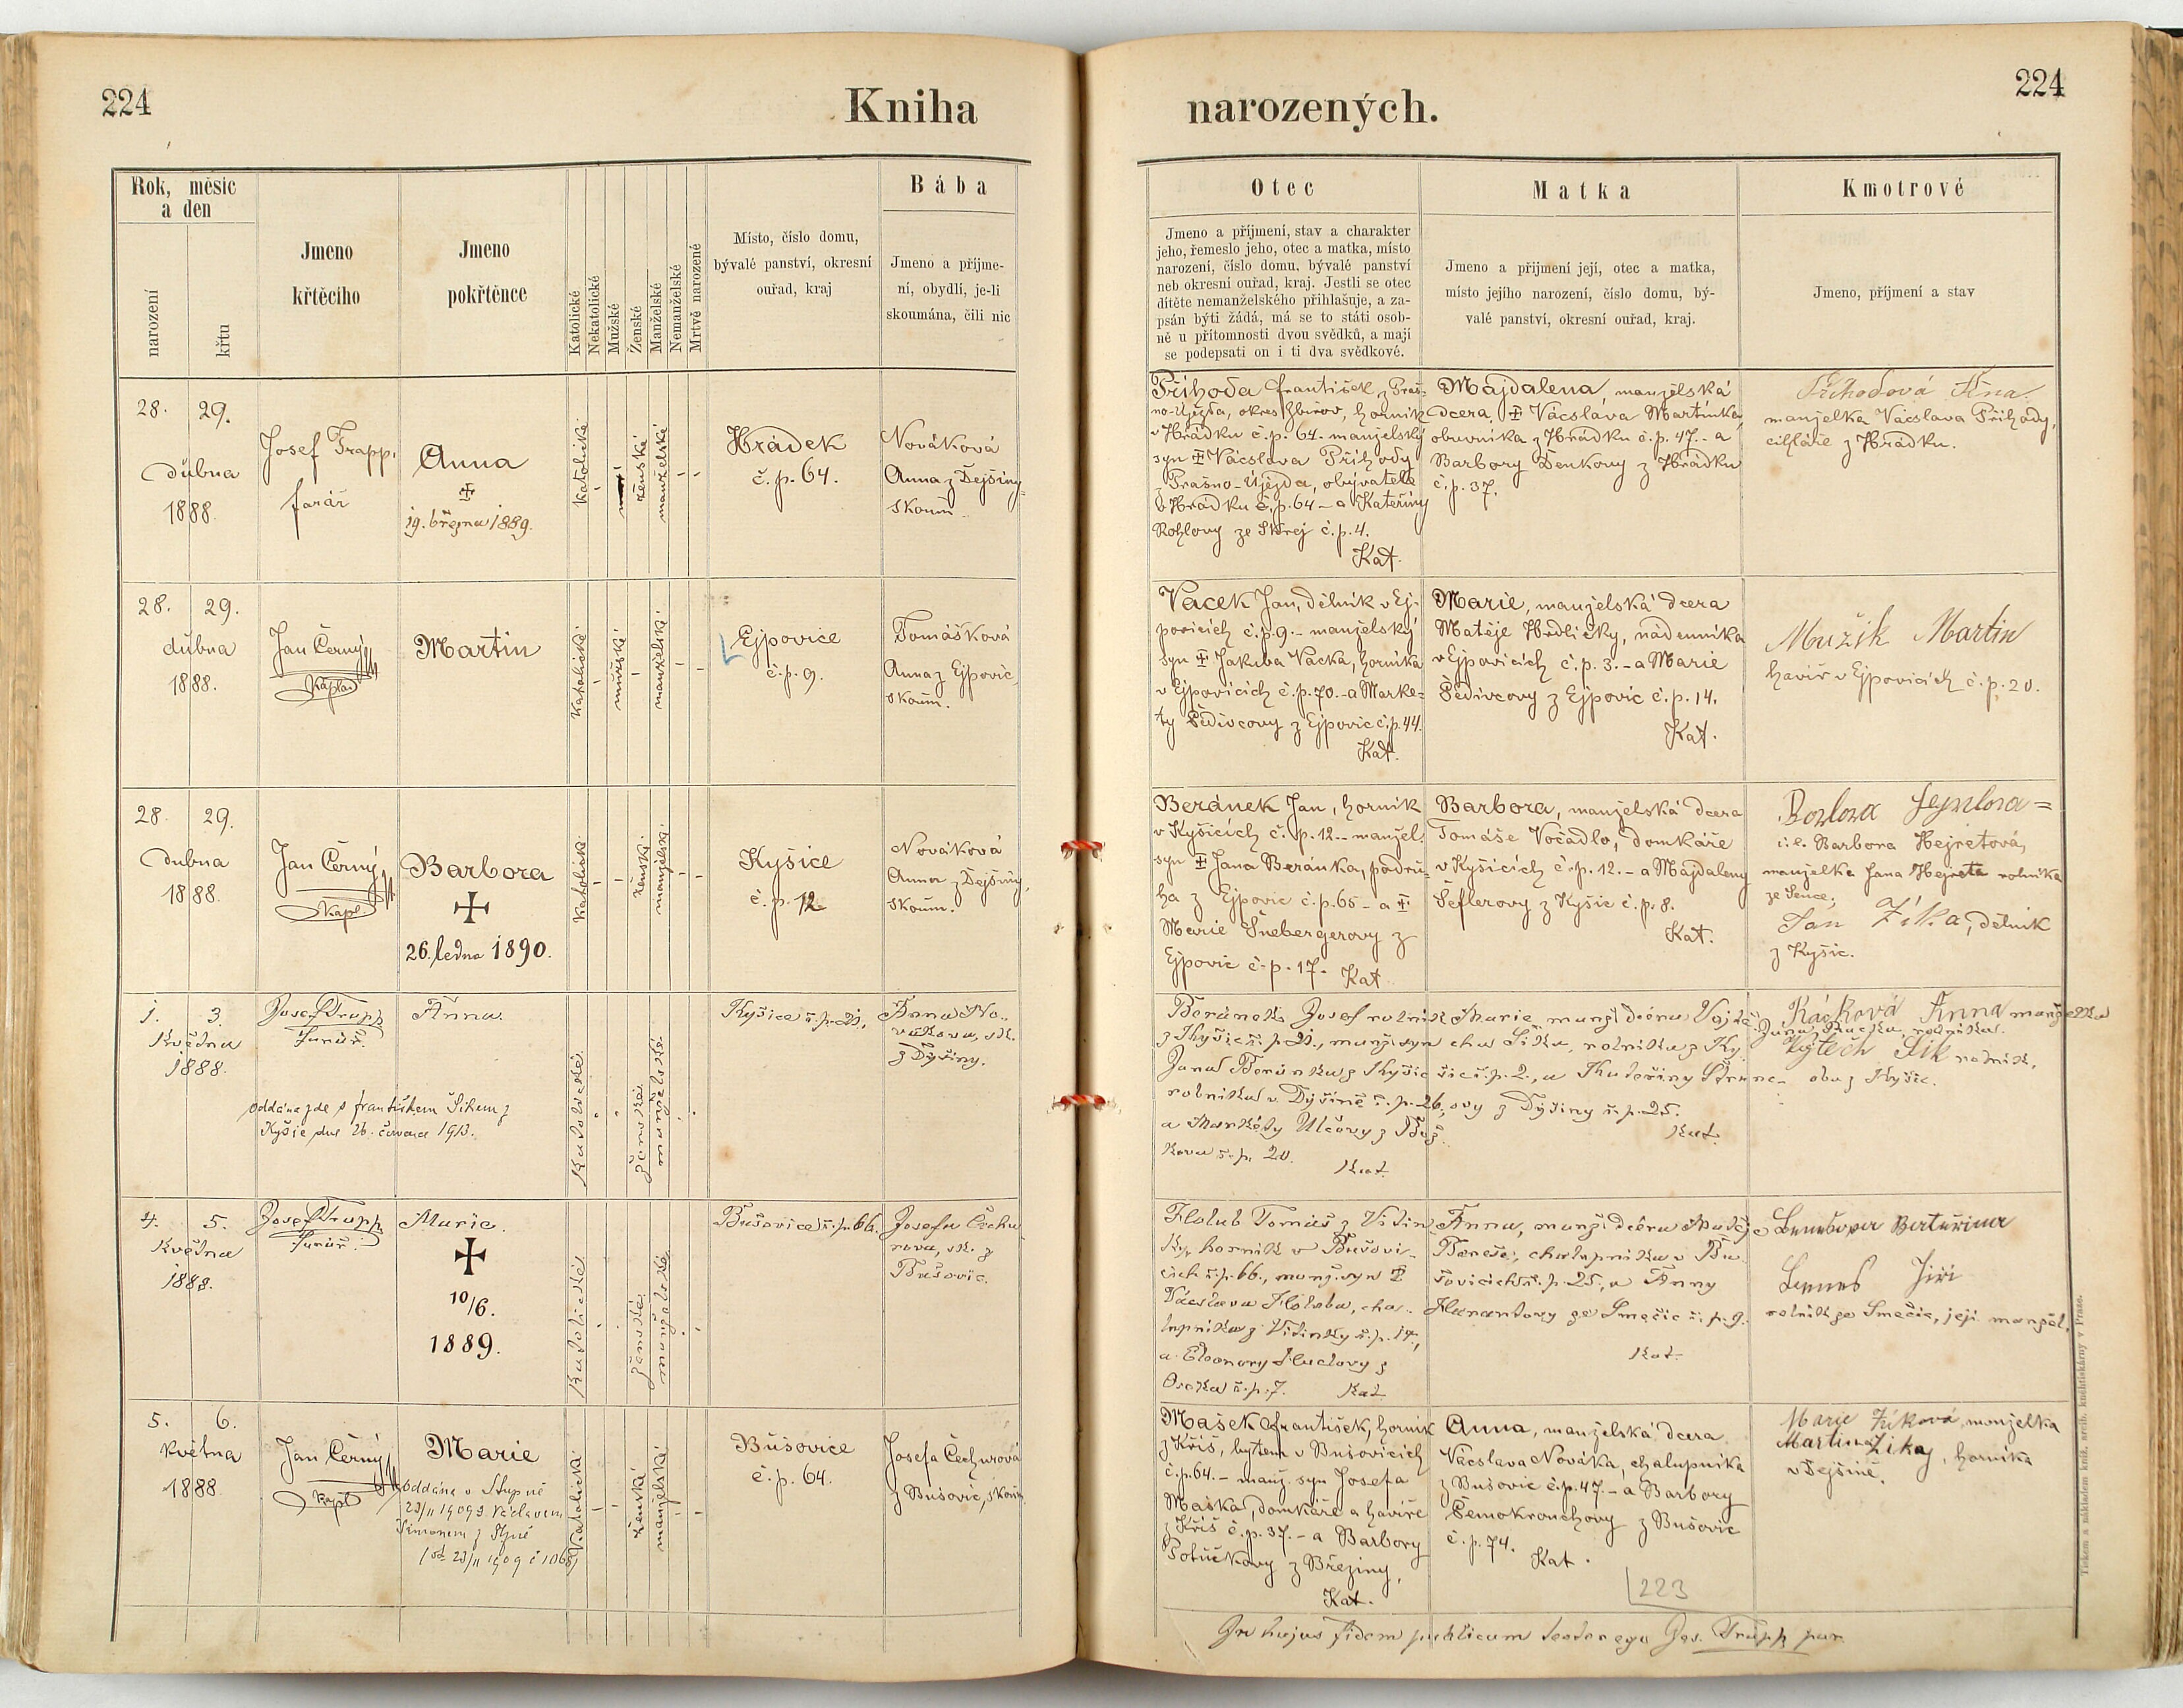 224
Kniha
narozených.
224
Rok, měsíc
a den
narození
křtu
Jmeno
křtěcího
Jmeno
pokřtěnce
Katolické
Nekatolické
Mužské
Ženské
Manželské
Nemanželské
Mrtvě narozené
Místo, číslo domu,
bývalé panství, okresní
ouřad, kraj
Bába
Jmeno a příjme-
ní, obydlí, je-li
skoumána, čili nic
Otec
Jmeno a příjmení, stav a charakter
jeho, řemeslo jeho, otec a matka, místo
narození, číslo domu, bývalé panství
neb okresní ouřad, kraj. Jestli se otec
dítěte nemanželského přihlašuje, a za-
psán býti žádá, má se to státi osob-
ně u přítomnosti dvou svědků, a mají
se podepsati on i ti dva svědkové.
Matka
Jmeno a přijmení její, otec a matka,
místo jejího narození, číslo domu, bý-
valé panství, okresní ouřad, kraj.
Kmotrové
Jmeno, příjmení a stav
28. 29.
dubna
1888.
Josef Trapp,
farář
Anna
19. března 1889.
katolické
ženské
manželské
Hrádek
č. p. 64.
Nováková
Anna z Dejšiny
skoum.
Příhoda František z Praš-
no-Újezda, okres Zbirov, horník
v Hrádku č. p. 64. manželský
syn ‡ Vácslava Příhody
z Prašno-Újezda, obývatele
v Hrádku č. p. 64 - a Kateřiny
ze Skrej č. p. 4.
Kat.
Majdalena, manželská
dcera ‡ Vácslava Martínka,
obuvníka z Hrádku č. p. 47. - a
Barbory Denkovy z Hrádku
č. p. 37.
Příhodová Anna
manželka Vácslava Příhody,
cihláře z Hrádku.
28. 29.
dubna
1888.
Jan Černý
Kaplan
Martin
katolické
mužské
manželské
Ejpovice
č. p. 9.
Tomášková
Anna z Ejpovic,
skoum.
Vacek Jan, dělník v Ej-
povicích č. p. 9. - manželský
syn ‡ Jakuba Vacka, horníka
v Ejpovicích č. p. 70. - a Marke-
ty Šedivcovy z Ejpovic č. p. 44.
Kat.
Marie, manželská dcera
Matěje Hrdličky, nádenníka
v Ejpovicích č. p. 3. - a Marie
Šedivcovy z Ejpovic č. p. 14.
Kat.
Mužík Martin
havíř v Ejpovicích č. p. 20.
28. 29.
dubna
1888.
Jan Černý
Kapl
Barbora
26. ledna 1890.
katolické
ženské
manželské
Kyšice
č. p. 12
Nováková
Anna z Dejšiny,
skoum.
Beránek Jan, horník
v Kyšicích č. p. 12. - manžel.
syn ‡ Jana Beránka, podru-
ha z Ejpovic č. p. 65 - a ‡
Marie Šnebergerovy z
Ejpovic č. p. 17. Kat
Barbora, manželská dcera
Tomáše Vočadlo, domkáře
v Kyšicích č. p. 12. - a Majdaleny
Šeflerovy z Kyšic č. p. 8.
Kat.
i. e. Barbora Hejretová,
manželka Jana Hejreta rolníka
ze Sence,
Jan Zíka, dělník
z Kyšic.
1. 3.
Května
1888.
Josef Trapp
farář.
Anna.
oddána zde s Františkem Šikem z
Kyšic dne 26. července 1913.
Katolické
ženské
manželské
Kyšice č. p. 21.
Anna No-
vákova, sk.
z Dýšiny.
Beránek Josef rolník
z Kyšic č. p. 21., manž. syn
Jana Beránka z Kyšic
rolníka v Dýšině č. p. 26,
a Markéty Ulčovy z Buš-
kova č. p. 20. Kat
Marie, manž. dcera Vojtě-
cha Šika, rolníka z Ky-
šic č. p. 2., a Kateřiny
ovy z Dýšiny č. p. 25.
Kat.
Ráčková Anna manželka
Jana Ráčka, rolníka.
Vojtěch Šik rolník,
oba z Kyšic.
4. 5.
Května
1888.
Josef Trapp
farář.
Marie.
10/6.
1889.
Katolické
ženské
manželské
Bušovice č. p. 66.
Josefa Čechu-
rova, sk. z
Bušovic.
Holub Tomáš z Vitin-
ky, horník v Bušovi-
cích č. p. 66., manž. syn ‡
Václava Holuba, cha-
lupníka z Vitinky č. p. 14.,
a Eleonory Hudovy z
Oseka č. p. 7. Kat
Anna, manž. dcera Matěje
Bereše, chalupníka v Bu-
šovicích č. p. 25, a Anny
Harantovy ze Smečic č. p. 9.
Kat.
Jiří
rolník ze Smečic, její manžel.
5. 6.
května
1888
Jan Černý
Kapl
Marie
oddána v Stupně
23/11 1909 s Václavem
Šimonem z Stupně
23/11 1909 č 1068)
katolické
ženské
manželské
Bušovice
č. p. 64.
Josefa Čechurová
z Bušovic, skoum.
Mašek František, horník
z Kříš, bytem v Bušovicích
č. p. 64. - manž. syn Josefa
Maška, domkáře a havíře
z Kříš č. p. 37. - a Barbory
Potůčkovy z Březiny,
Kat.
Anna, manželská dcera
Vácslava Nováka, chalupníka
z Bušovic č. p. 47. - a Barbory
Černokrouchovy z Bušovic
č. p. 74.
Kat.
Marie Zíková, manželka
Martina Zíka, horníka
v Dejšině.
223
In hujus fidem publicam testor ego Jos. Trapp par.
Tiskem a nákladem knih. arcib. knihtiskárny v Praze.